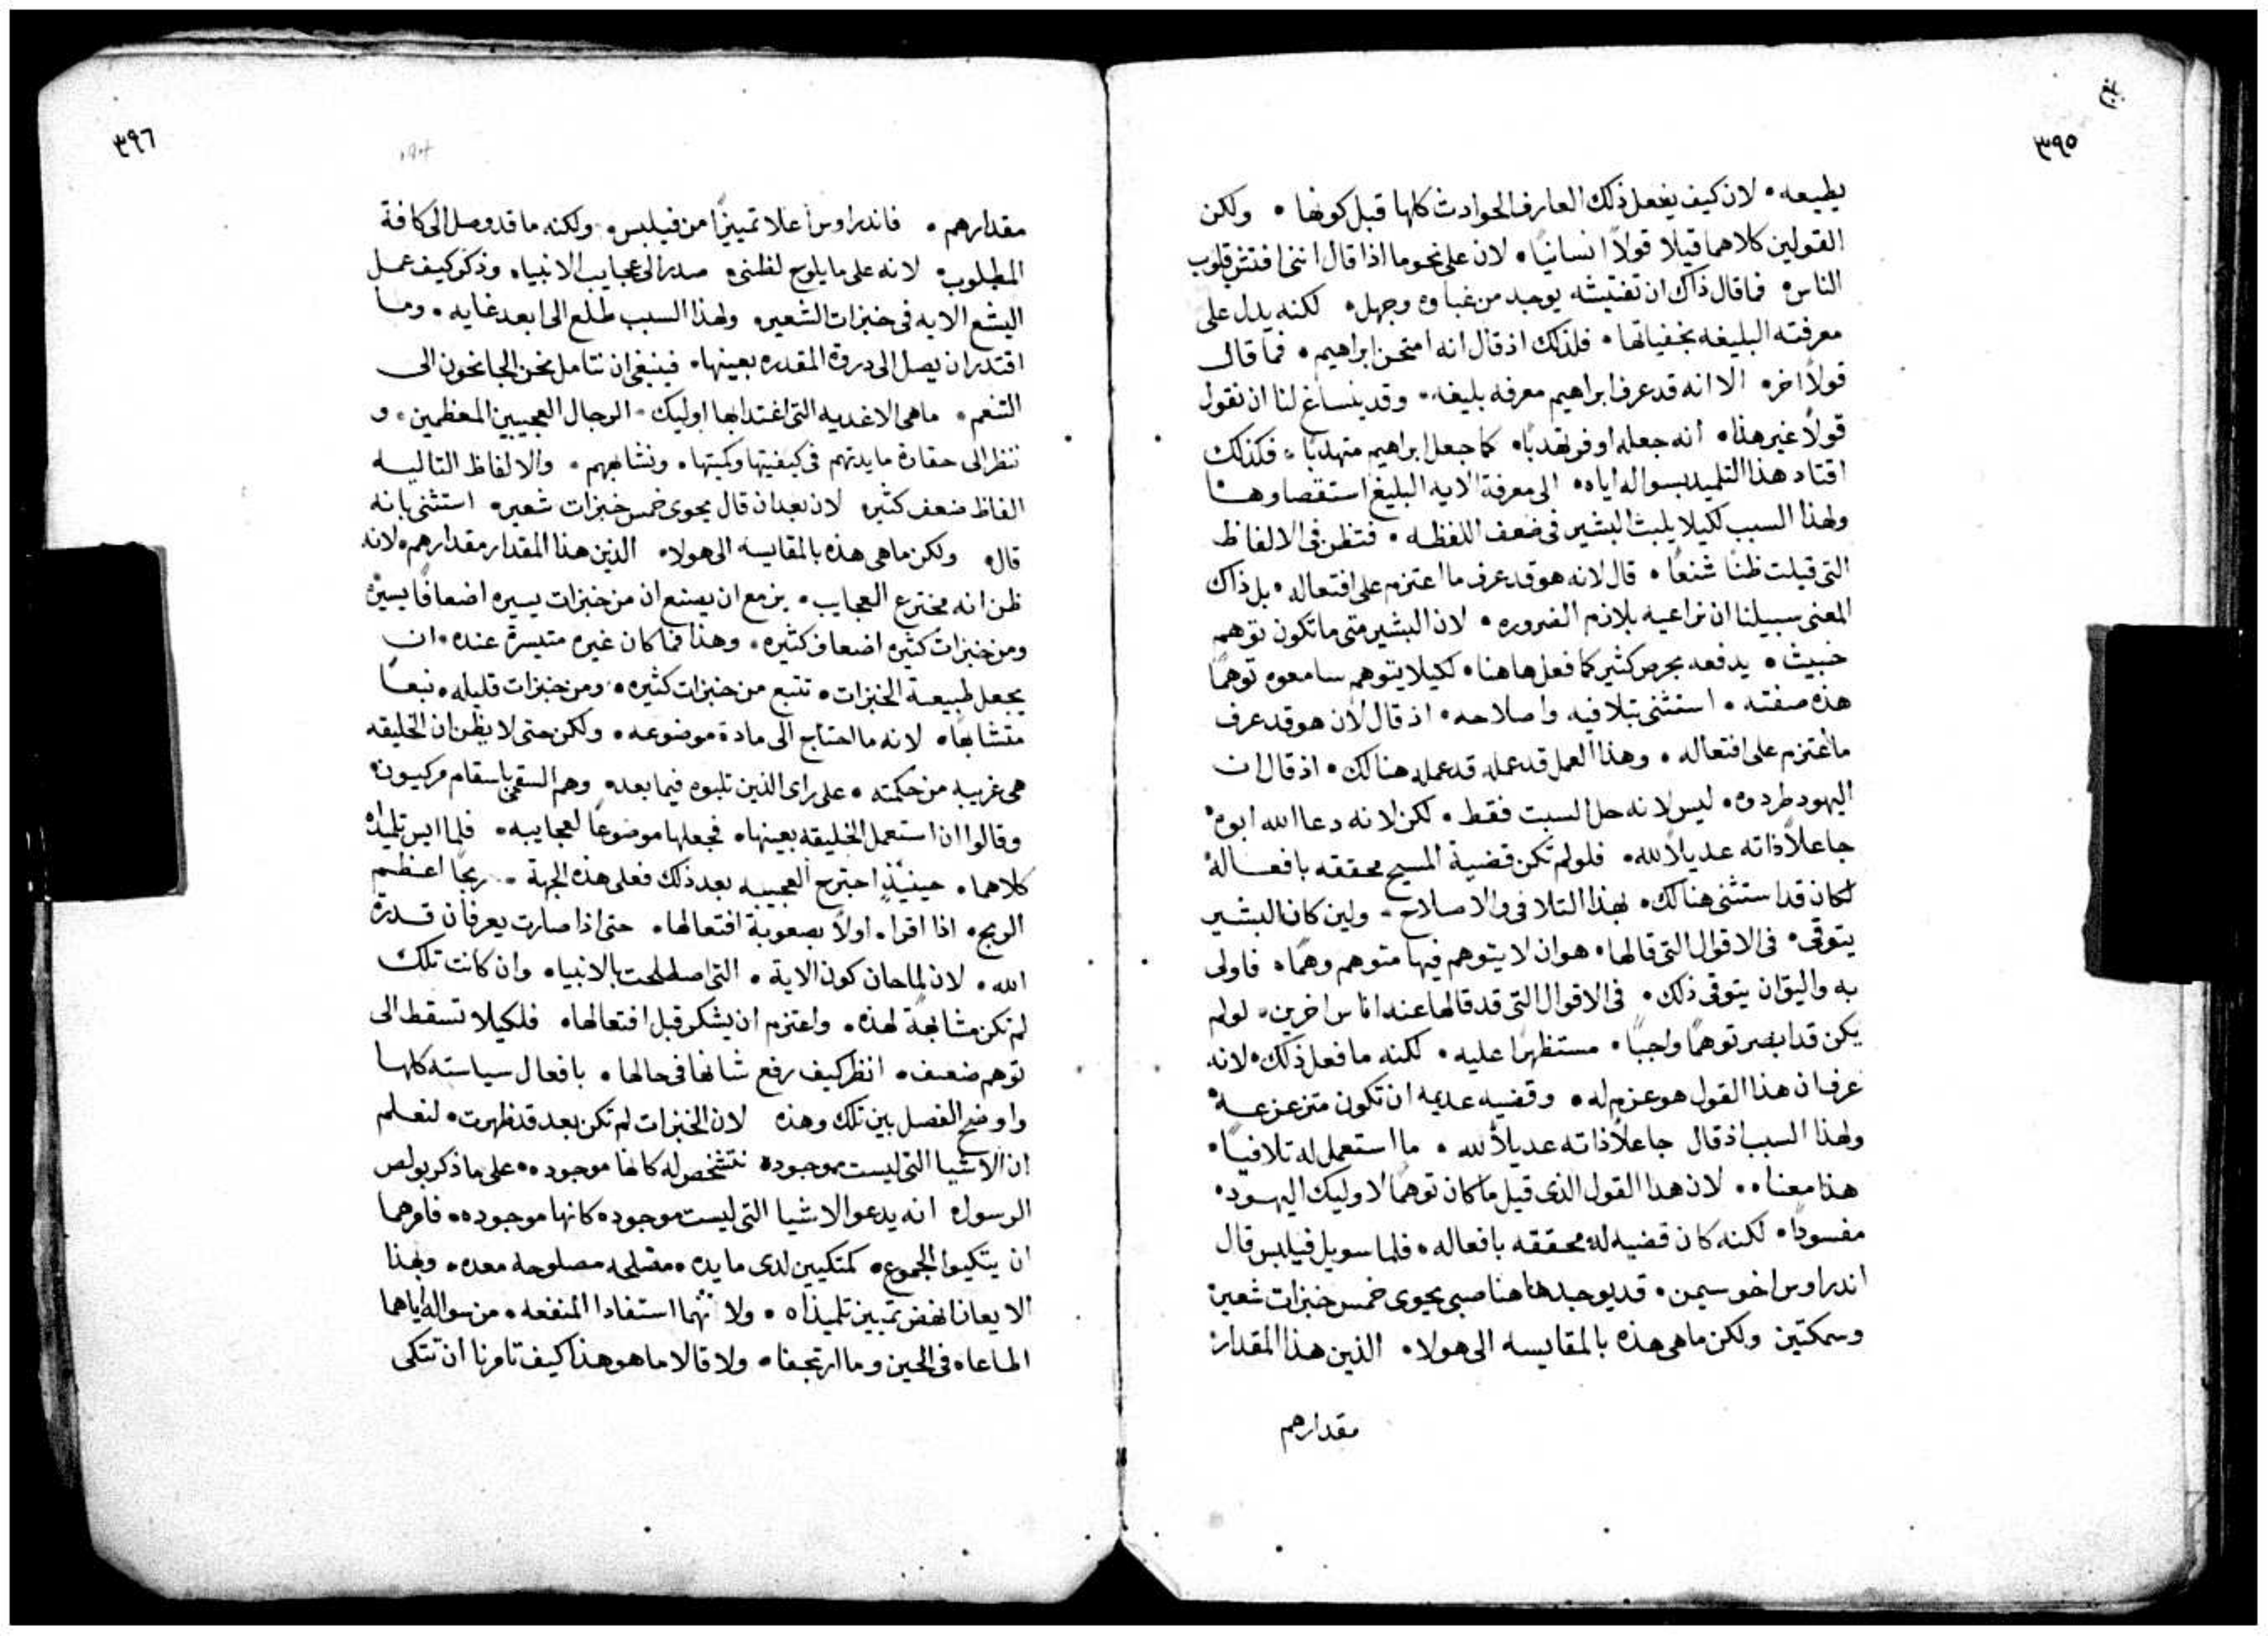 ٣٩٥
يطيعه • لان كيف يفعل ذلك العارف الحوادث كلها قبل كونها • ولكن
القولين كلاهما قيلا قولاً انسانياً • لان على نحو ما اذا قال انني افتش قلوب
الناس • فما قال ذاك ان تفتيشه يوجد من غباوه وجهل • لكنه يدل على
معرفته البليغه بخفياتها • فلذلك اذ قال انه امتحن ابراهيم • فما قال
قولاً اخر • الا انه قد عرف ابراهيم معرفه بليغه • وقد ينساغ لنا ان نقول
قولاً غير هذا • انه جعله اوفر تهدباً • كما جعل ابراهيم متهدباً • فكذلك
اقتاد هذا التلميد بسواله اياه • الى معرفة الايه البليغ استقصاوها
ولهذا السبب لكيلا يلبث البشير في ضعف اللفظه • فتظن في الالفاظ
التي قيلت ظناً شنعاً • قال لانه هو قد عرف ما اعتزم على افتعاله • بل ذاك
المعنى سبيلنا ان نراعيه بلازم الضروره • لان البشير متى ما تكون توهم
خبيث • يدفعه بحرص كثير كما فعل هاهنا • لكيلا يتوهم سامعوه توهماً
هذه صفته • استثنى بتلافيه واصلاحه • اذ قال لان هو قد عرف
ما اعتزم على افتعاله • وهذا العمل قد عمله قد عمله هنالك • اذ قال ان
اليهود طردوه • ليس لانه حل السبت فقط • لكن لانه دعا الله ابوه •
جاعلاً ذاته عديلاً لله • فلو لم تكن قضية المسيح محققه بافعاله
لكان قد استثنى هنالك • بهذا التلافي والاصلاح • ولين كان البشير
يتوقى • في الاقوال التي قالها • هو ان لا يتوهم فيها متوهم وهماً • فاولى
به واليق ان يتوقى ذلك • في الاقوال التي قد قالها عند اناس اخرين • لو لم
يكن قد ابصر توهماً واجباً • مستظهراً عليه • لكنه ما فعل ذلك • لانه
عرف ان هذا القول هو عزم له • وقضيه عديمه ان تكون متزعزعة •
ولهذا السبب اذ قال جاعلاً ذاته عديلاً لله • ما استعمل له تلافياً •
هذا معناه • لان هذا القول الذي قيل ما كان توهماً لاوليك اليهود •
مفسوداً • لكنه كان قضيه له محققه بافعاله • فلما سويل فيلبس قال
اندراوس اخو سيمن • قد يوجد هاهنا صبي يحوى خمس خبزات شعير •
وسمكتين ولكن ما هي هذه بالمقايسه الى هولاء • الذين هذا المقدار
مقدارهم
٣٩٦
مقدارهم • فاندراوس اعلا تمييزاً من فيلبس • ولكنه ما قد وصل الى كافة
المطلوب • لانه على ما يلوح لظني • صدر الى عجايب الانبياء وذكر كيف عمل
اليشع الايه في خبزات الشعير • ولهذا السبب طلع الى ابعد غايه • وما
اقتدر ان يصل الى دروة المقدره بعينها • فينبغي ان نتامل نحن الجانحون الى
التنعم • ما هي الاغديه التي اغتدابها اوليك • الرجال العجيبين المعظمين • و
ننظر الى حقارة مايدتهم في كيفيتها وكميتها • ونشابههم • والالفاظ التاليه
الفاظ ضعف كثير • لان بعد ان قال يحوى خمس خبزات شعير • استثنى بانه
قال • ولكن ما هي هذه بالمقايسه الى هولاء • الذين هذا المقدار مقدارهم • لانه
ظن انه مخترع العجايب • يزمع ان يصنع ان من خبزات يسيره اضعافاً يسيره
ومن خبزات كثيره اضعاف كثيره • وهذا فما كان غير متيسرة عنده • ان
يجعل طبيعة الخبزات • تنبع من خبزات كثيره • ومن خبزات قليله • نبعاً
متشابهاً • لانه ما احتاج الى مادة موضوعه • ولكن حتى لا يظن ان الخليقه
هي غريبه من حكمته • على راى الذين تلبوه فيما بعد • وهم السقمى باسقام مركيون •
وقالوا ان استعمل الخليقه بعينها • فجعلها موضوعاً لعجايبه • فلما ايس تلميذاه
كلاهما • حينيذٍ اجترح العجيبه بعد ذلك فعلى هذه الجهة • ربحا اعظم
الربح • اذا اقرا • اولاً بصعوبة افتعالها • حتى اذا صارت يعرفان قدرة
الله • لان لما حان كون الاية • التي اصطلحت بالانبياء وان كانت تلك
لم تكن مشابهة لهذه • واعتزم ان يشكر قبل افتعالها • فلكيلا تسقط الى
توهم ضعف • انظر كيف رفع شانها في حالها • بافعال سياسته كلها
واوضح الفصل بين تلك وهذه لان الخبزات لم تكن بعد قد ظهرت • لنعلم
ان الاشيا التي ليست موجوده تتشخص له كانها موجوده • على ما ذكر بولص
الرسول • انه يدعو الاشيا التي ليست موجوده كانها موجوده • فامرهما
ان يتكيو الجموع • كمتكيين لدى مايده • مصلحه مصلوحه معده • وبهذا
الايعان انهض تمييز تلميذاه • ولانهما استفادا المنفعه • من سواله اياهما
اطاعاه في الحين وما ارتجفا • ولا قالا ما هو هذا كيف تامرنا ان تتكى